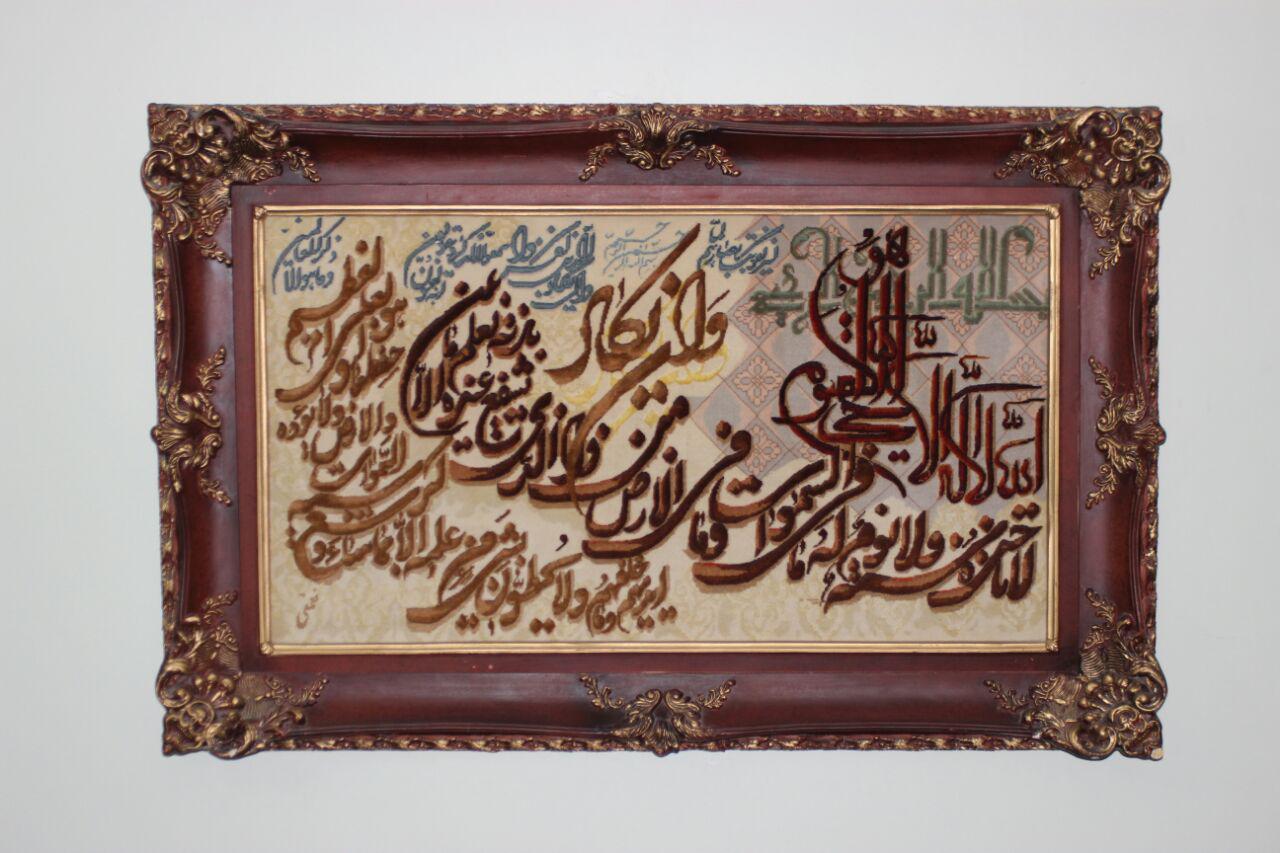 بسم الله الرحمن الرحيم
الله لا إله إلا هو الحي القيوم
لا تأخذه سنة ولا نوم له ما في السموات وما في الارض من ذا الذي يشفع عنده الا باذنه يعلم ما بين
ايديهم وما خلفهم ولا يحيطون بشيء من علمه الا بما شاء وسع كرسيه
السموات والارض ولا يؤده حفظهما وهو العلي العظيم
وان يكاد
الذين كفروا ليزلقونك بابصارهم لما
سمعوا الذكر ويقولون
انه لمجنون
وما هو الا ذكر للعالمين